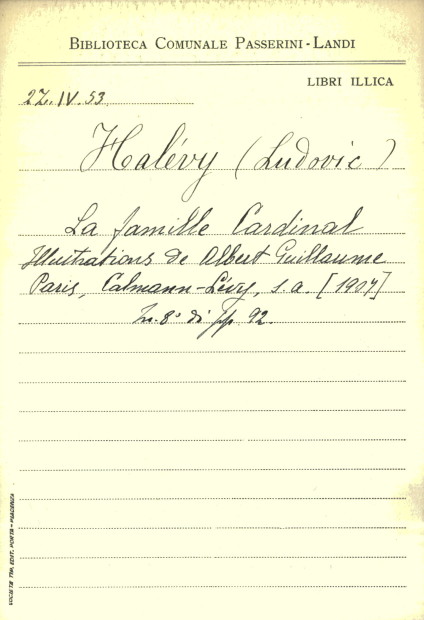 BIBLIOTECA COMUNALE PASSERINI-LANDI
LIBRI ILLICA
2Z.IV.53
Halévy (Ludovic)
La famille Cardinal
Illustrations de Albert Guillaume
Paris, Calmann-Lévy, s.a. [1907]
In. 8° di pp 92.